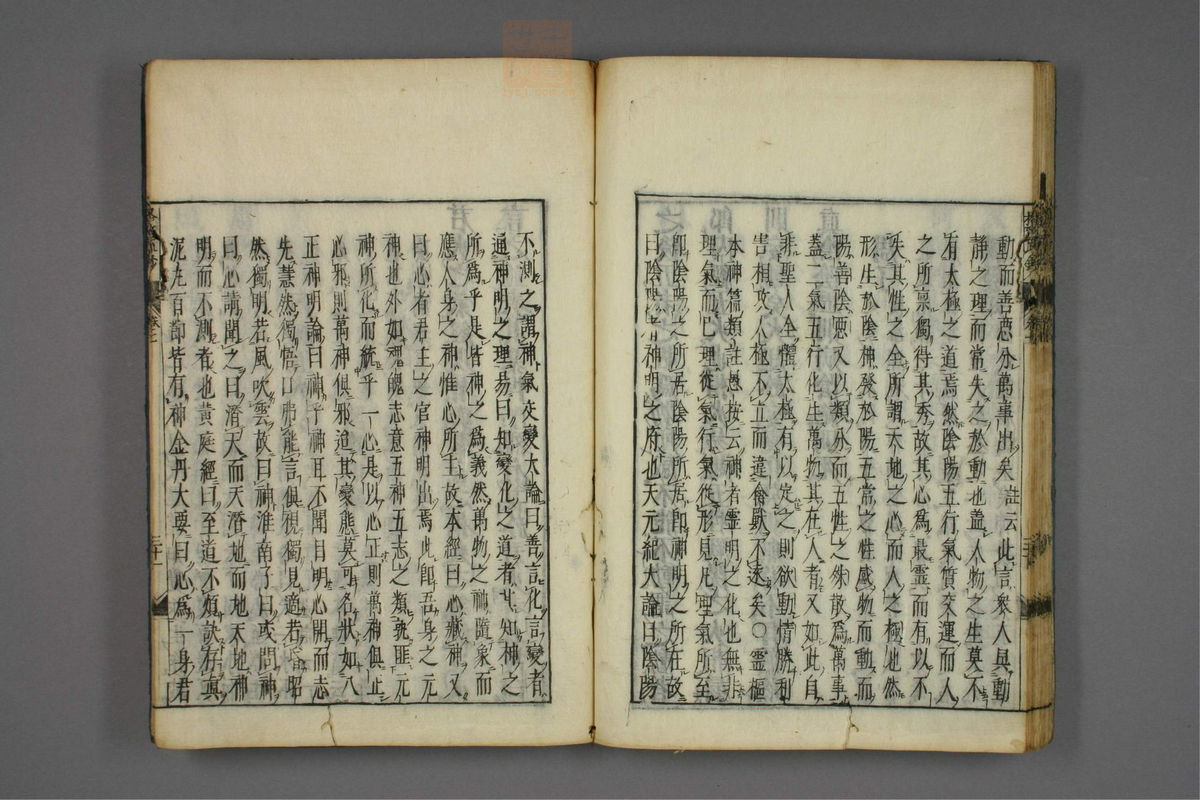 動而善惡分萬事出矣註云此言衆人具動
靜之理而常失之於動也蓋人物之生莫不
有太極之道焉然陰陽五行氣質交運而人
之所稟獨得其秀故其心爲最靈而有以不
失其性之全所謂天地之心而人之極也然
形生於陰神發於陽五常之性感物而動而
陽善陰惡又以類分而五性之殊散爲萬事
蓋二氣五行化生萬物其在人者又如此自
非聖人全體太極有以定之則欲動情勝利
害相攻人極不立而違禽獸不遠矣○靈樞
本神篇類註愚按云神者靈明之化也無非
理氣而已理從氣行氣從形見凡理氣所至
即陰陽之所居陰陽所居即神明之所在故
曰陰陽者神明之府也天元紀大論曰陰陽
不測之謂神氣交變大論曰善言化言變者
通神明之理易曰知變化之道者其知神之
所爲乎是皆神之爲義然萬物之神隨象而
應人身之神惟心所主故本經曰心藏神又
曰心者君主之官神明出焉此即吾身之元
神也外如魂魄志意五神五志之類孰匪元
神所化而統乎一心是以心正則萬神俱正
心邪則萬神俱邪迨其變態莫可名狀如八
正神明論曰神乎神耳不聞目明心開而志
先慧然獨悟口弗能言俱視獨見適若昏昭
然獨明若風吹雲故曰神淮南子曰或問神
曰心請聞之曰潛天而天潛地而地天地神
明而不測者也黃庭經曰至道不煩訣存眞
泥丸百節皆有神金丹大要曰心爲一身君